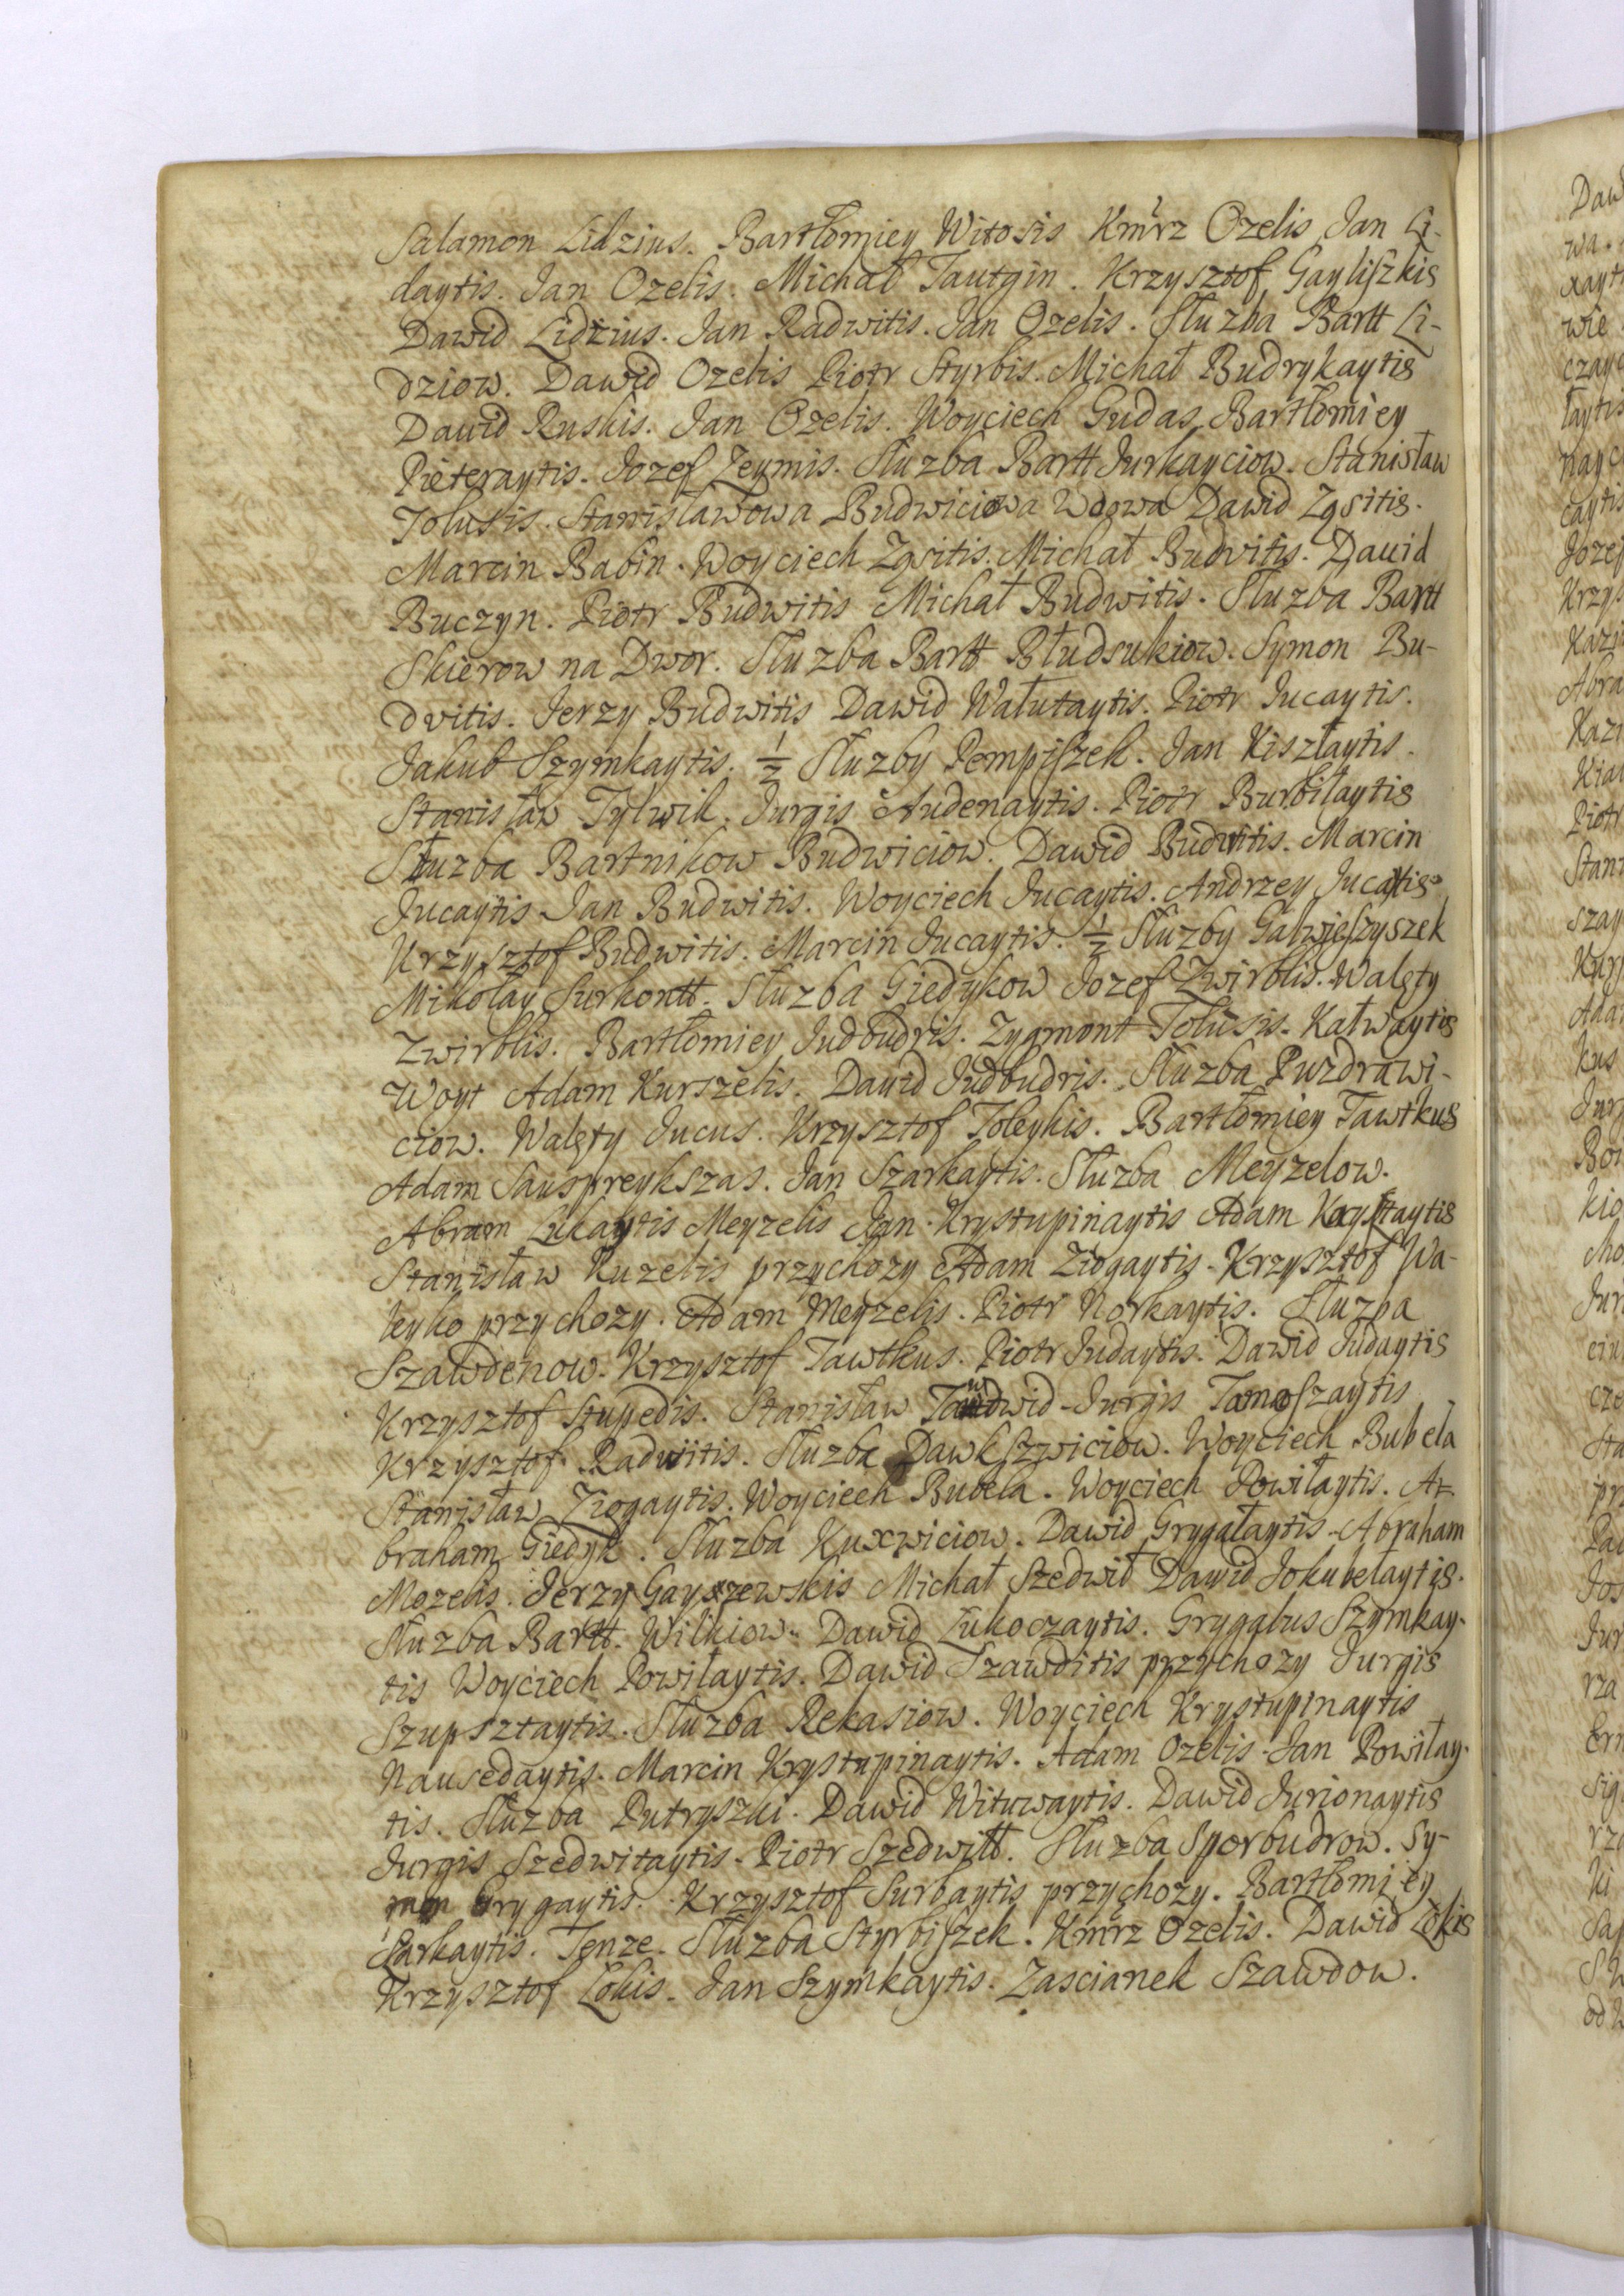 Salamon Lidzius. Bartłomiey Witosis Kmrz Ozelis Jan Li-
daytis. Jan Ozelis. Michał Tautgin. Krzysztof Gayliszkis
Dawid Lidzius. Jan Radwitis. Jan Ozelis. Służba Bartt Li-
dziow. Dawid Ozelis Piotr Styrbis. Michał Budrykaytis
Dawid Ruskis. Jan Ozelis. Woyciech Gudas. Bartłomiey
Pieteraytis. Jozef Zeymis. Służba Bartt Jurkayciow. Stanisław
Tolusis. Stanisławowa Budwiciowa Wdowa Dawid Zgsitis.
Marcin Babin. Woyciech Zgsitis. Michał Budvitis. Dawid
Buczyn. Piotr Budwitis Michał Budwitis. Służba Bartt
Skierow na Dwor. Służba Bartt Błudsukiow. Symon Bu-
dvitis. Jerzy Budwitis Dawid Wałutaytis. Piotr Jucaytis.
Jakub Szymkaytis. 1/2 Służby Pempiszek. Jan Kiszłaytis.
Stanisław Tylwik. Jurgis Audenaytis. Piotr Burbiłaytis
Służba Bartnikow Budwiciow. Dawid Budvitis. Marcin
Jucaytis Jan Budwitis. Woyciech Jucaytis. Andrzey Jucaytis
Krzysztof Budwitis. Marcin Jucaytis. 1/2 Służby Galwieszyszek
Mikołay Surkontt. Służba Giedykow Jozef Zwirblis. Walęty
Zwirblis. Bartłomiey Judbudris. Zygmont Tolusis. Kałwaytis
Woyt Adam Kurszelis. Dawid Judbudris. Służba Puzdrawi-
ciow. Walęty Jucus. Krzysztof Toleykis. Bartłomiey Tawtkus
Adam Sauspreykszas. Jan Szarkaytis. Służba Meyzelow.
Abram Lukaytis Meyzelis Jan Krystupinaytis Adam
Stanisław Kuzelis przychozy Adam Ziogaytis. Krzysztof Wa-
leyko przychozy. Adam Meyzelis. Piotr Norkaytis. Służba
Szawdenow. Krzysztof Tawtkus. Piotr Judaytis. Dawid Judaytis
Krzysztof Stupedis. Stanisław Jurgis Tamoszaytis
Krzysztof Radwitis. Służba Dawkszwiciow. Woyciech Bubela
Stanisław Ziogaytis. Woyciech Bubela. Woyciech Powiłaytis. A-
braham Giedyk. Służba Kuxwiciow. Dawid Grygałaytis. Abraham
Mozelis. Jerzy Gayszewskis Michał Szedwił Dawid Jokubelaytis.
Służba Bartt. Wilkiow. Dawid Lukoczaytis. Grygalus Szymkay-
tis Woyciech Powiłaytis. Dawid Szawditis przychozy Jurgis
Szupsztaytis. Służba Rekasiow. Woyciech Krystupinaytis
Nausedaytis. Marcin Krystupinaytis. Adam Ozelis. Jan Powiłay-
tis. Służba Putryszki. Dawid Wituwaytis. Dawid Jurionaytis
Jurgis Szedwitaytis. Piotr Szedwitt. Służba Sporbudrow. Sy-
mon Grygaytis. Krzysztof Surbaytis przychozy. Bartłomiey
Sarkaytis. Tenze. Służba Styrbiszek. Kmrz Ozelis. Dawid Lokis
Krzysztof Lokis. Jan Szymkaytis. Zascianek Szawdow.